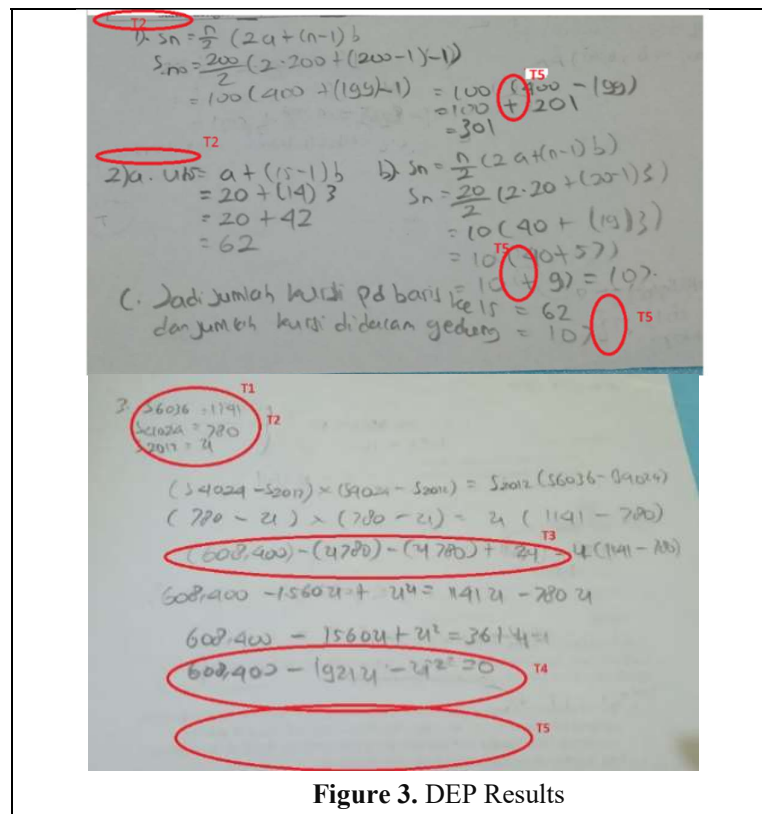 T2
1). Sn = n/2 (2a+(n-1)b
S200 = 200/2 (2·200 + (200-1)-1))
= 100 (400 + (199)-1) = 100 (400 - 199)
T5
= 100 + 201
= 301
T2
2) a. U15 = a + (15-1)b
= 20 + (14) 3
= 20 + 42
= 62
b). Sn = n/2 (2a+(n-1) b)
Sn = 20/2 (2·20 + (20-1)3)
= 10 (40 + (19)3)
T5
= 10 (40+57)
= 10 + 97 = 107.
C. Jadi jumlah kursi pd baris ke 15 = 62
dan jumlah kursi didalam gedung = 107
T5
T1
3. S6036 = 1141
T2
S4024 = 780
S2012 = u
(S4024 - S2012) × (S4024 - S2012) = S2012 (S6036 - S4024)
(780 - u) × (780 - u) = u (1141 - 780)
T3
(608.400) - (u780) - (u780) + = u (1141 - 780)
608.400 - 1560u + = 1141u - 780u
608.400 - 1560u + u² = 361u
608.400 - 1921u - u² = 0
T4
T5
Figure 3. DEP Results